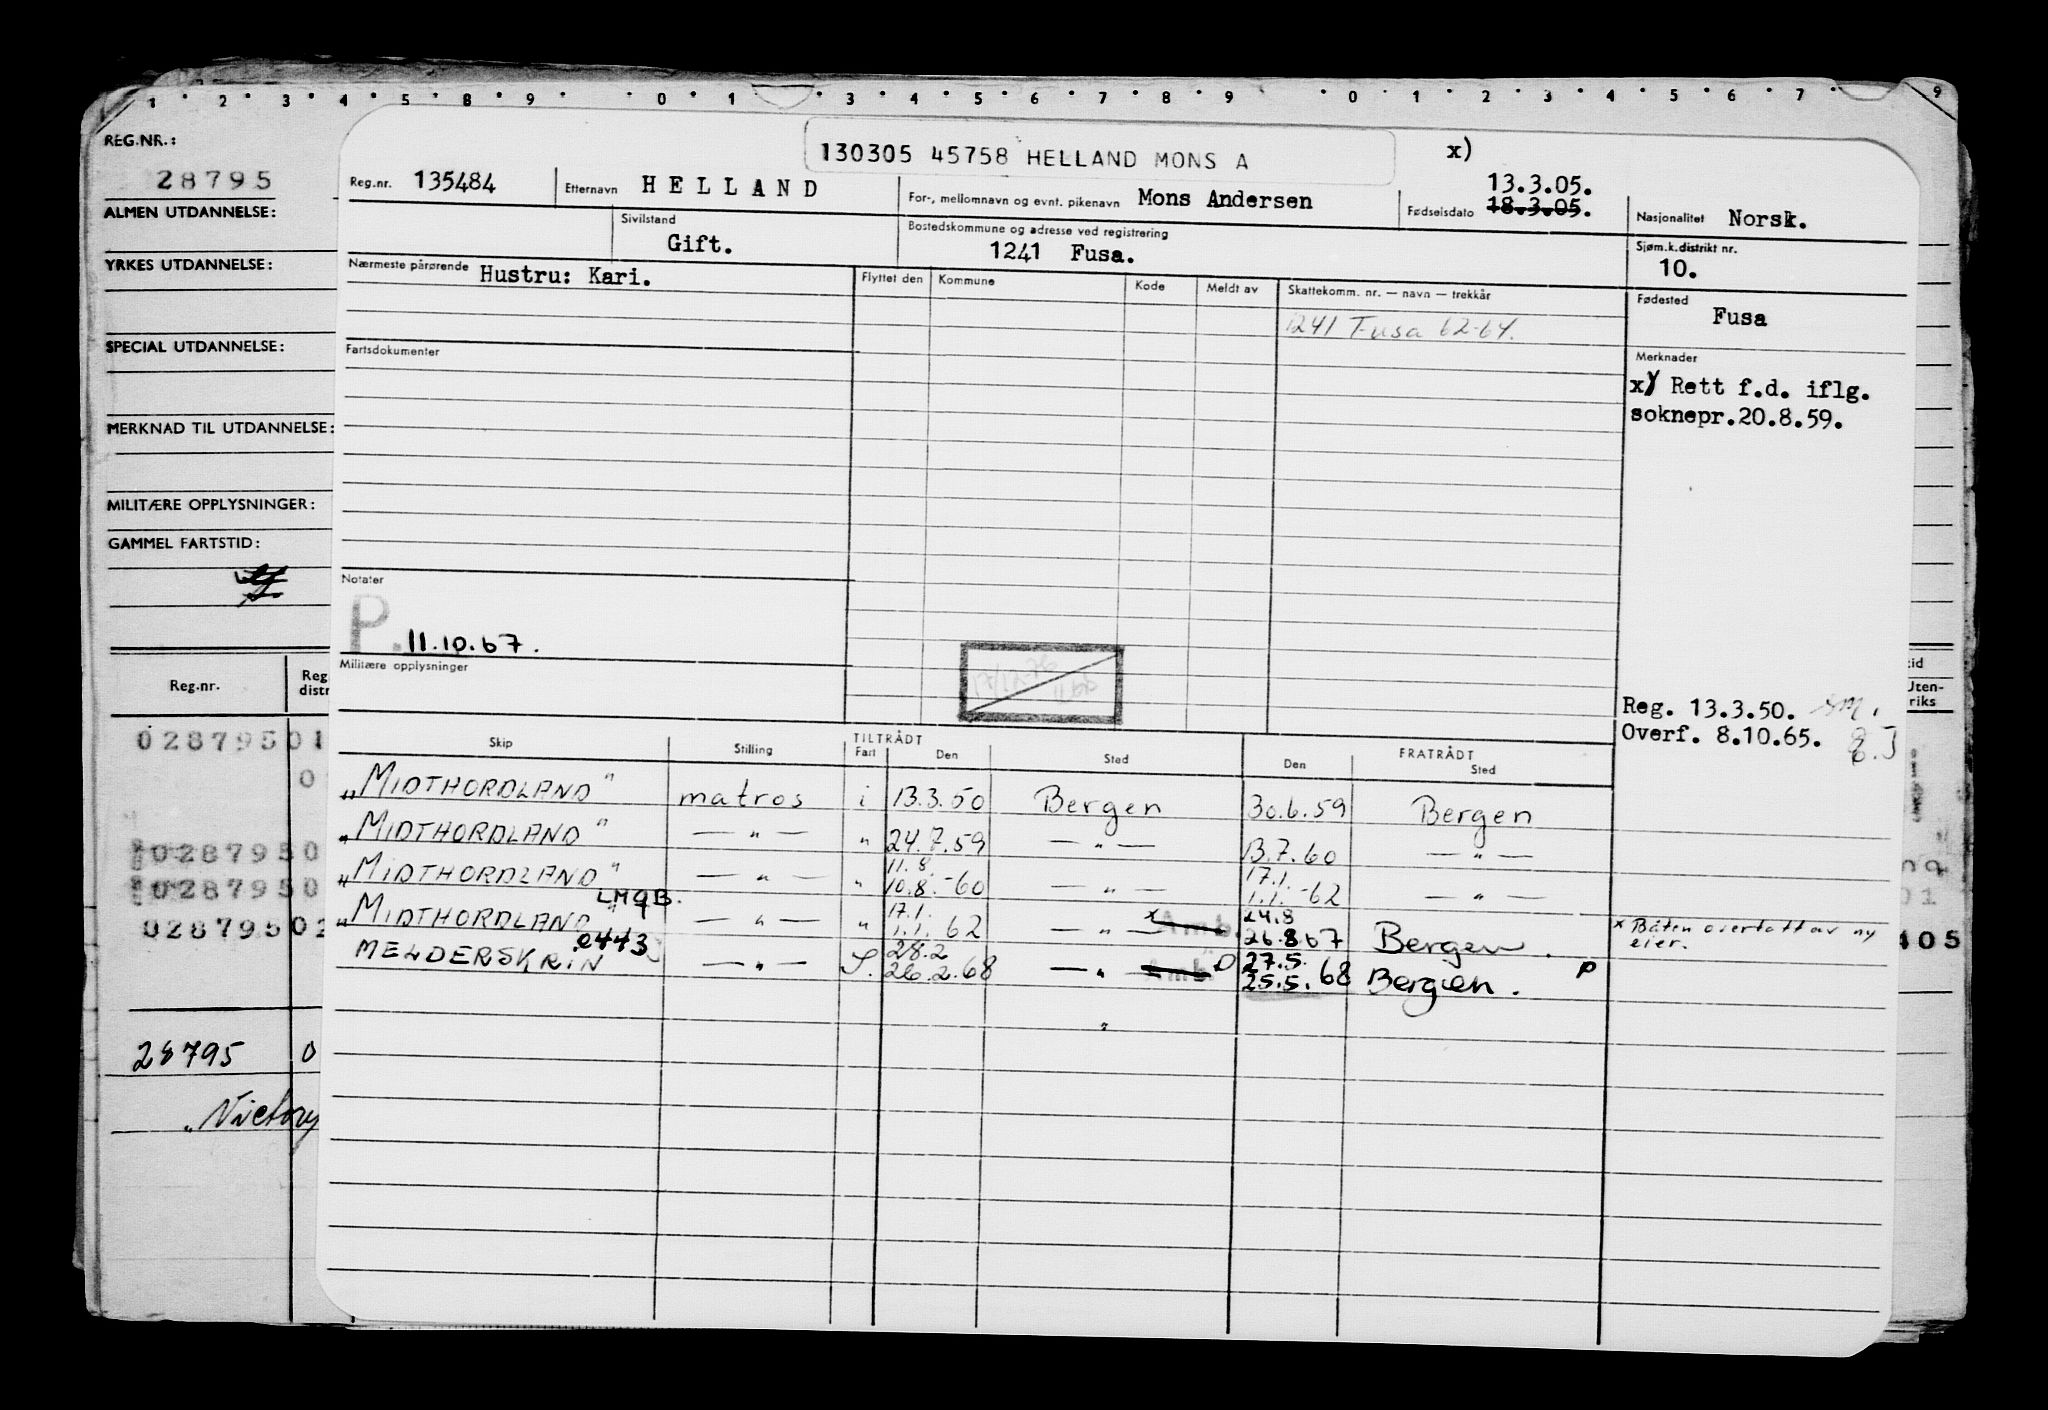 1 2 3 4 5 8 9 0 1 3 4 5 6 7 8 9 0 1 2 3 4 5 6 7 9
REG.NR.:
28795
ALMEN UTDANNELSE:
YRKES UTDANNELSE:
SPECIAL UTDANNELSE:
MERKNAD TIL UTDANNELSE:
MILITÆRE OPPLYSNINGER:
GAMMEL FARTSTID:
Reg.nr. Reg distr
02879501
0
0287950
0287950
02879502
28795 0
130305 45758 HELLAND MONS A
x)
Reg.nr. 135484 Etternavn HELLAND For-, mellomnavn og evnt. pikenavn Mons Andersen Fødselsdato 13.3.05. 18.3.05. Nasjonalitet Norsk.
Sivilstand Gift. Bostedskommune og adresse ved registrering 1241 Fusa. Sjøm.k.distrikt nr. 10.
Nærmeste pårørende Hustru: Kari. Flyttet den Kommune Kode Meldt av Skattekomm. nr. — navn — trekkår Fødested Fusa
1241 Fusa 62-64.
Fartsdokumenter
Merknader
x) Rett f.d. iflg.
soknepr.20.8.59.
Notater
P. 11.10.67.
Militære opplysninger
Reg. 13.3.50.
Overf. 8.10.65.
Skip Stilling TILTRÅDT Fart Den Sted FRATRÅDT Den Sted
„MIDTHORDLAND" matros i 13.3.50 Bergen 30.6.59 Bergen
„MIDTHORDLAND" — „ — „ 24.7.59 — „ — 13.7.60 — „ —
„MIDTHORDLAND" — „ — „ 11.8. 10.8.-60 — „ — 17.1. 1.1.-62 — „ —
„MIDTHORDLAND" LMQB. — „ — „ 17.1. 1.1. 62 — „ — x Amb. 24.8 26.8 67 Bergen. x Båten overtatt av ny
eier.
MELDERSKRIN — „ — S. 28.2 26.2.68 — „ — Amb. D 27.5. 25.5. 68 Bergen. P
„
tid
Uten-
riks
01
405